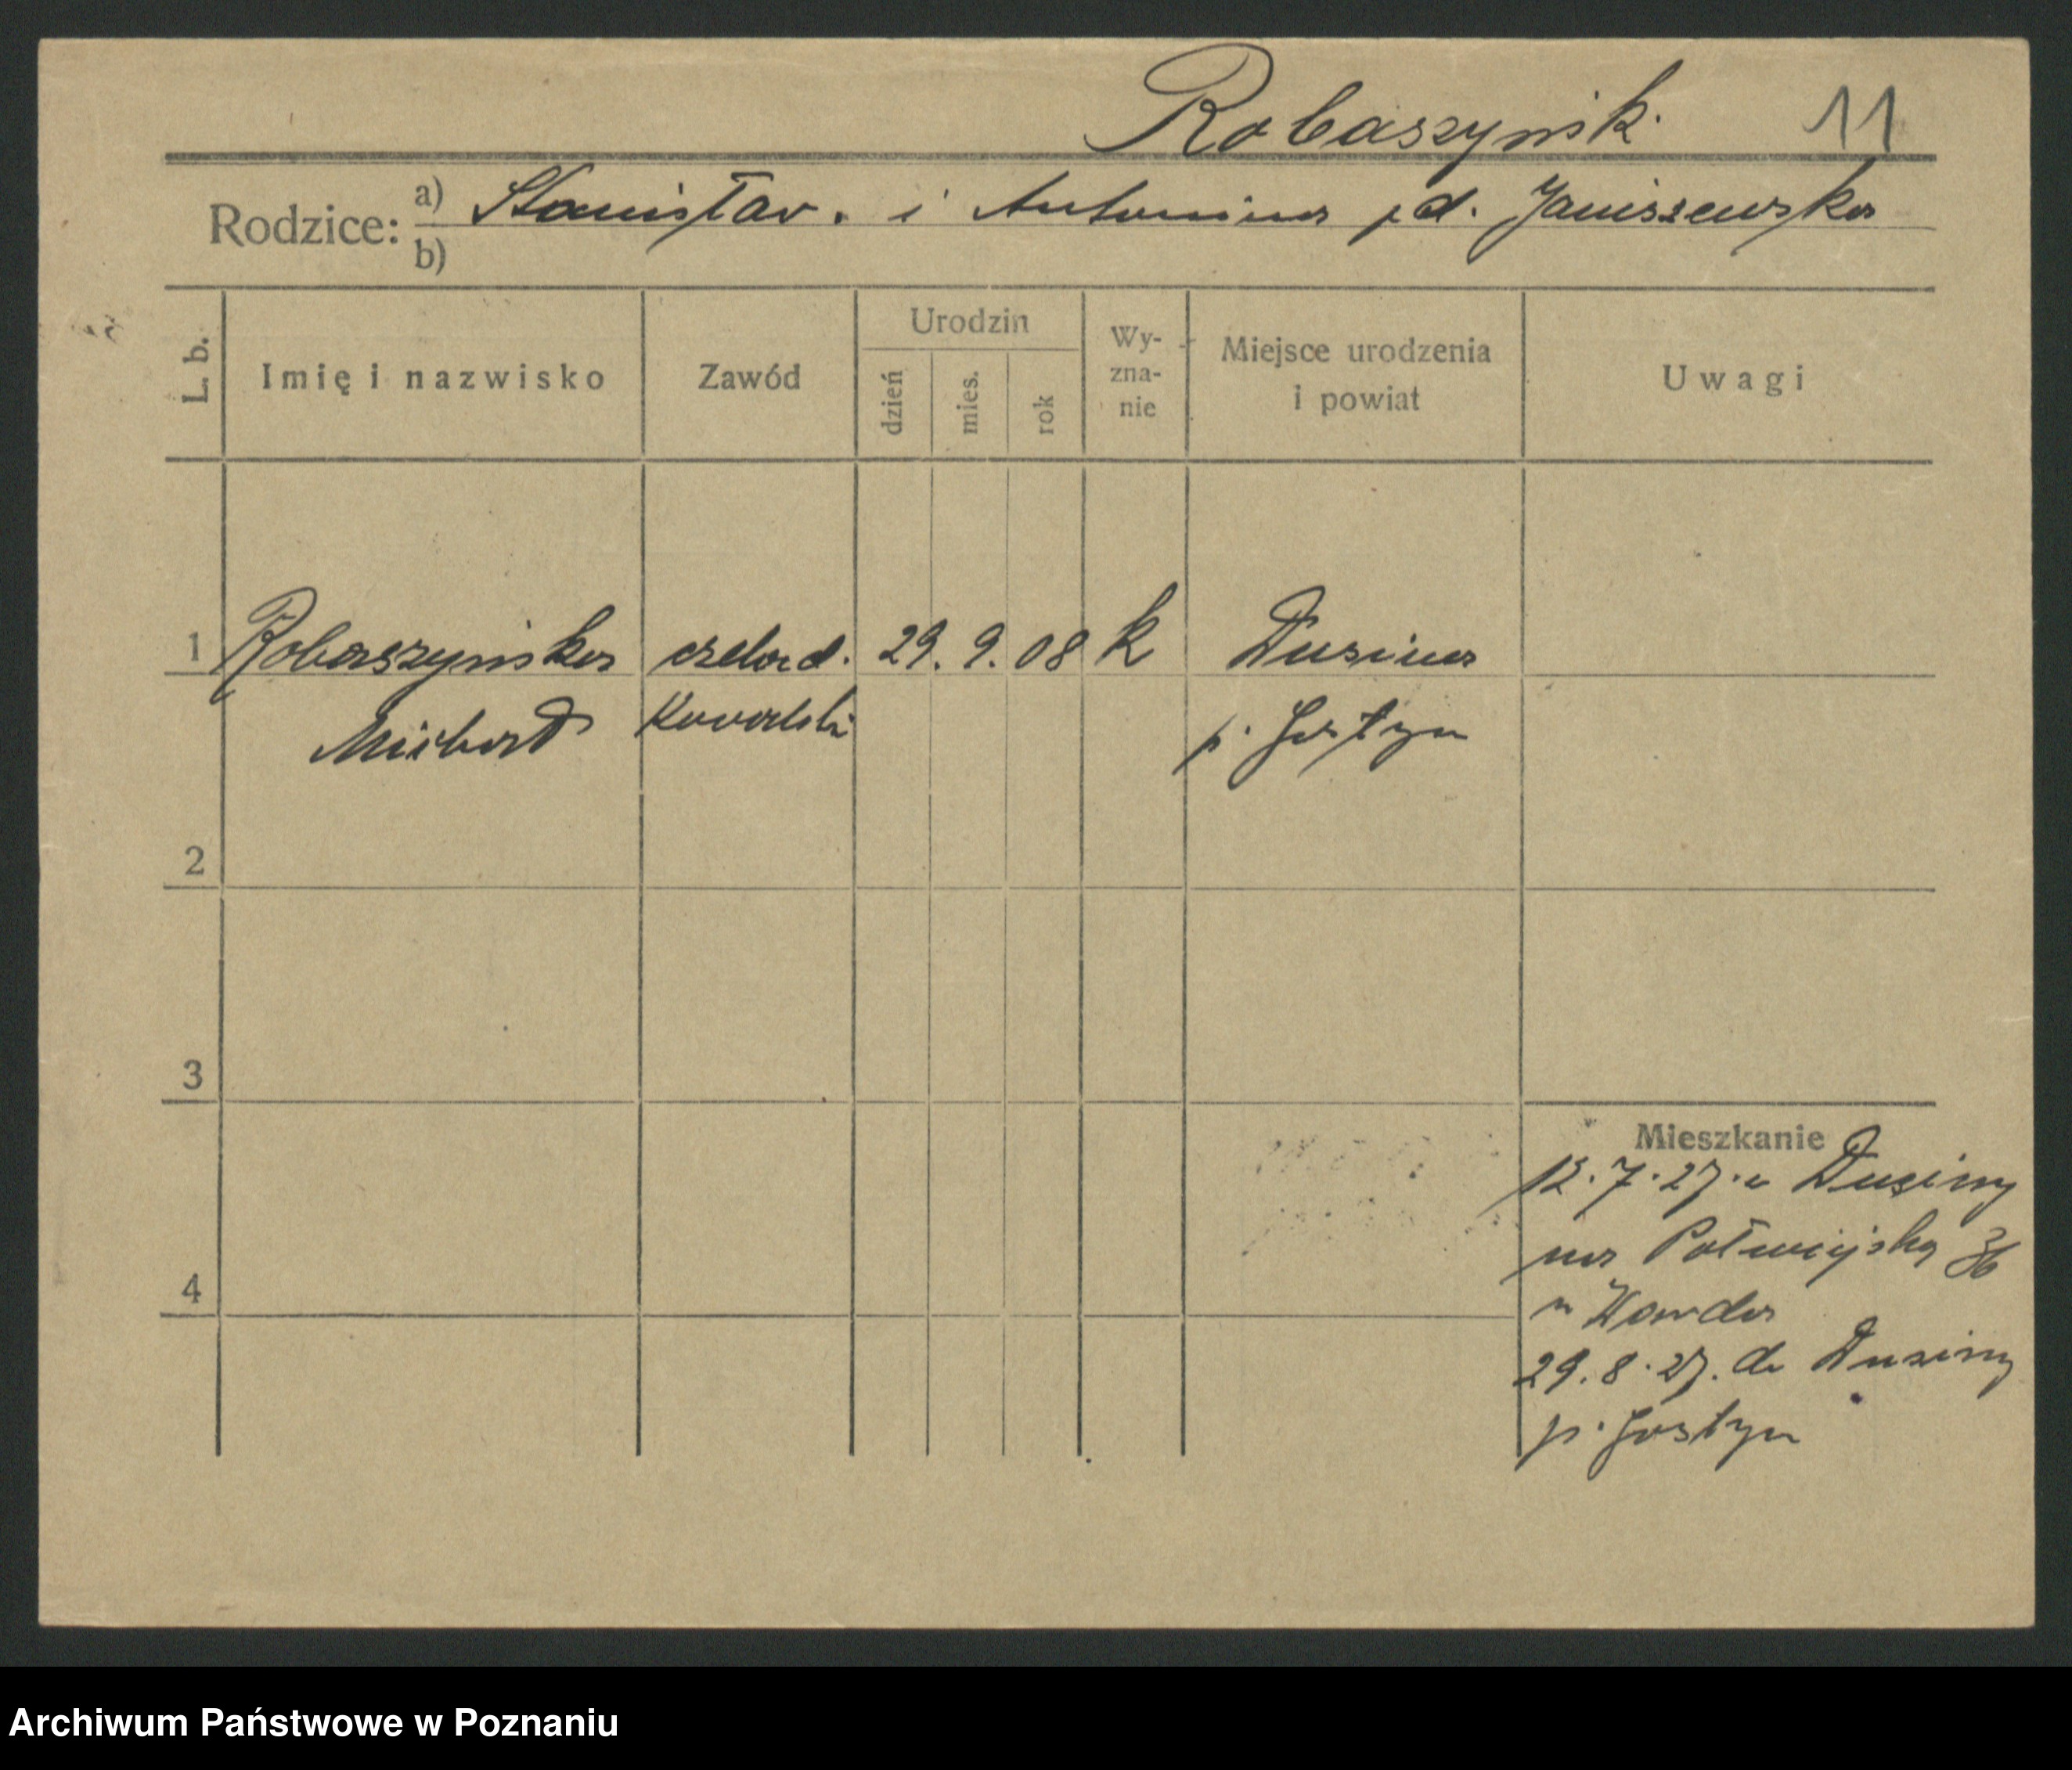 Robaszyńsk. 11
Rodzice: a) Stanisław. i Antonina z d. Janiszewska
b)
L. b. Imię i nazwisko Zawód Urodzin dzień mies. rok Wy- zna- nie Miejsce urodzenia i powiat Uwagi
1 Robaszyńska czelad. 29. 9. 08 k Dusina
Michał Kowalski p. Gostyn
2
3
Mieszkanie
12.7.27. z Dusiny
na Półwiejską 36
4
29.8.27. do Dusiny
p. Gostyn
Archiwum Państwowe w Poznaniu